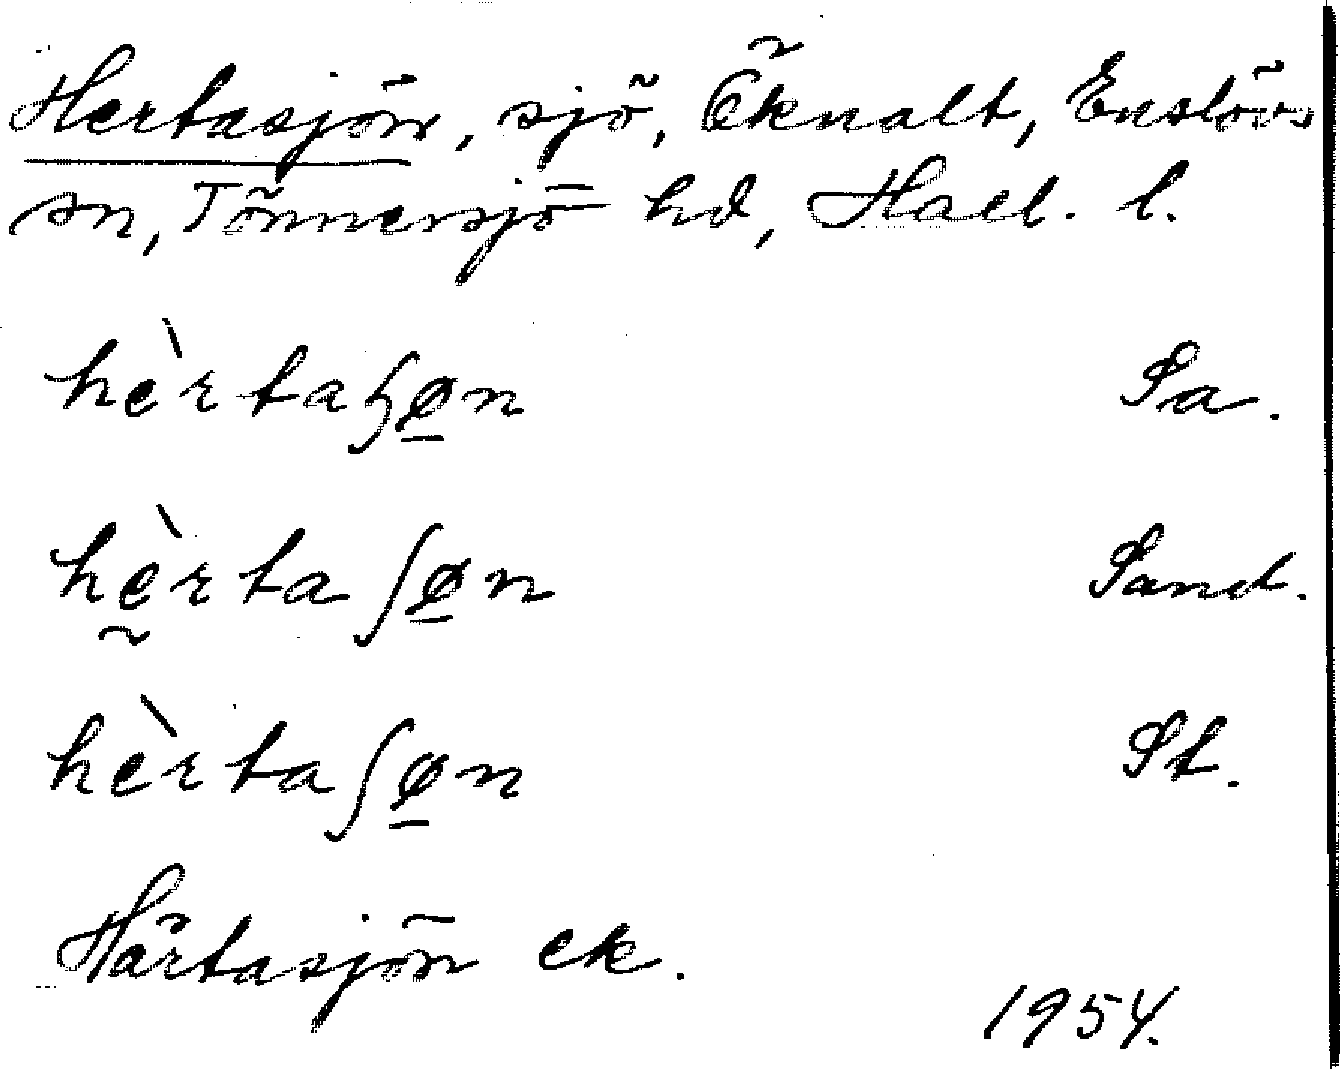 Hertasjön, sjö, Öknalt, Enslövs
sn, Tönnersjö hd, Hall. l.
hèrtaɧø̲n Sa.
hḛ̀rtaʃø̲n Sand.
hèrtaʃø̲n St.
Härtasjön ek.
1954.